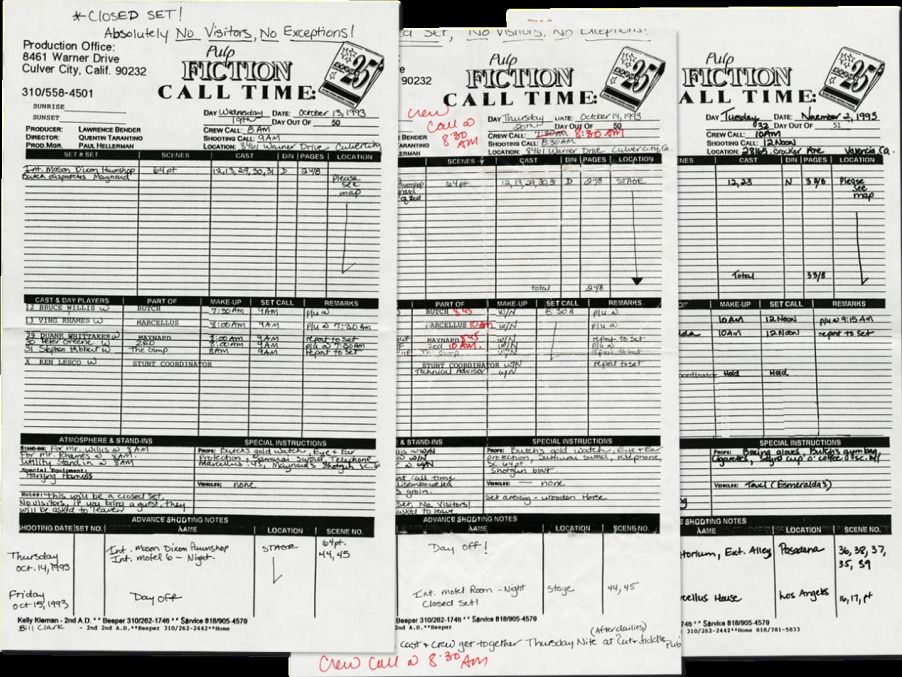 *CLOSED SET!
Absolutely No Visitors, No Exceptions!
Production Office:
8461 Warner Drive
Culver City, Calif. 90232
310/558-4501
Pulp
FICTION
CALL TIME:
25
SUNRISE
SUNSET
DAY Wednesday DATE: October 13, 1993
DAY OUT OF 50
PRODUCER: LAWRENCE BENDER
CREW CALL: 8AM
DIRECTOR: QUENTIN TARANTINO
SHOOTING CALL: 9AM
PROD.MGR. PAUL HELLERMAN
LOCATION: 8461 Warner Drive Culver City
SET # SET SCENES CAST D/N PAGES LOCATION
Int. Mason Dixon Pawnshop 64pt 12,13,29,30,31 D 2 4/8 Please
Butch dispatches Maynard see
map
CAST & DAY PLAYERS PART OF MAKE-UP SET CALL REMARKS
12 BRUCE WILLIS W BUTCH 7:30 AM 9AM P/U @
13 VING RHAMES W MARCELLUS 8:00 AM 9AM P/U @ 7:30 AM
29 DUANE WHITTAKER W MAYNARD 8:00 AM 9AM report to Set
30 Peter Greene W ZED 8:00 AM 9AM P/U @ 7:30AM
31 Stephen Hibbert W The Gimp 8AM 9AM report to set
X KEN LESCO W STUNT COORDINATOR
ATMOSPHERE & STAND-INS SPECIAL INSTRUCTIONS
STAND-INS: For Mr. Willis @ 8AM
For Mr. Rhames @ 8AM
Utility Stand in @ 8AM
Special Equipment:
Hanging Harness
Notes: This will be a closed set.
No visitors, if you bring a guest, they
will be asked to leave
PROPS: Butch's gold watch, Eye + Ear
Protection, Samurai Sword, Telephone
Marcellus .45, Maynard's Shotgun
VEHICLES: none
ADVANCE SHOOTING NOTES
SHOOTING DATE SET NO. NAME LOCATION SCENE NO.
Thursday Int. Mason Dixon Pawnshop STAGE 64pt.
Oct. 14, 1993 Int. motel 6 - Night 44,45
Friday Day Off
Oct 15, 1993
Kelly Kiernan - 2nd A.D. ** Beeper 310/262-1746 ** Service 818/905-4579
Bill Clark - 2nd 2nd A.D.**Beeper 310/262-2442**Home
Set, No Visitors, No Exceptions!
90232
Pulp
FICTION
CALL TIME:
25
crew
call @
8:30
AM
DAY Thursday DATE: October 14, 1993
DAY OUT OF 50
BENDER
CREW CALL: 8:30 AM
TARANTINO
SHOOTING CALL: 8:30AM
LOCATION: 8461 Warner Drive Culver City, Ca.
SCENES CAST D/N PAGES LOCATION
64pt 12,13,29,30,31 D 2 4/8 STAGE
total 2 4/8
PART OF MAKE-UP SET CALL REMARKS
BUTCH 8:45 W/N 8:30 A P/U @
MARCELLUS 10am W/N P/U @
MAYNARD 8:45 W/N report to Set
Zed 10 AM W/N P/U @
The Gimp W/N report to set
STUNT COORDINATOR W/N report to set
Technical Advisor W/N
& STAND-INS SPECIAL INSTRUCTIONS
PROPS: Butch's gold watch, Eye + Ear
protection, Samurai Sword, telephone,
Shotgun blast
VEHICLES: none
Set dressing - Wooden Horse
Set, No Visitors!
asked to leave
ADVANCE SHOOTING NOTES
NAME LOCATION SCENE NO.
Day off!
Int. motel Room - Night Stage 44,45
Closed Set!
1746 ** Service 818/905-4579
310/262-2442**Home
cast + crew get together Thursday Nite (After dailies) at Cat + fiddle Pub
Crew Call @ 8:30 AM
Pulp
FICTION
ALL TIME:
25
DAY Tuesday DATE: November 2, 1993
DAY OUT OF 51
CREW CALL: 10AM
SHOOTING CALL: 12 Noon
Valencia Ca.
CAST D/N PAGES LOCATION
12, 23 N 3 3/8 Please
see
map
Total 3 3/8
MAKE-UP SET CALL REMARKS
10AM 12 Noon P/U @ 9:15 AM
10AM 12 Noon report to set
Hold Hold
SPECIAL INSTRUCTIONS
PROPS: Boxing gloves, Butch's gym bag,
Cigarettes,
VEHICLES: Taxi (Esmeralda's)
ADVANCE SHOOTING NOTES
NAME LOCATION SCENE NO.
torium, Ext. Alley Pasadena 36, 38, 37,
35, 39
cellus House Los Angeles 16, 17, pt
746 ** Service 818/905-4579
310/262-2442**Home 818/781-5833